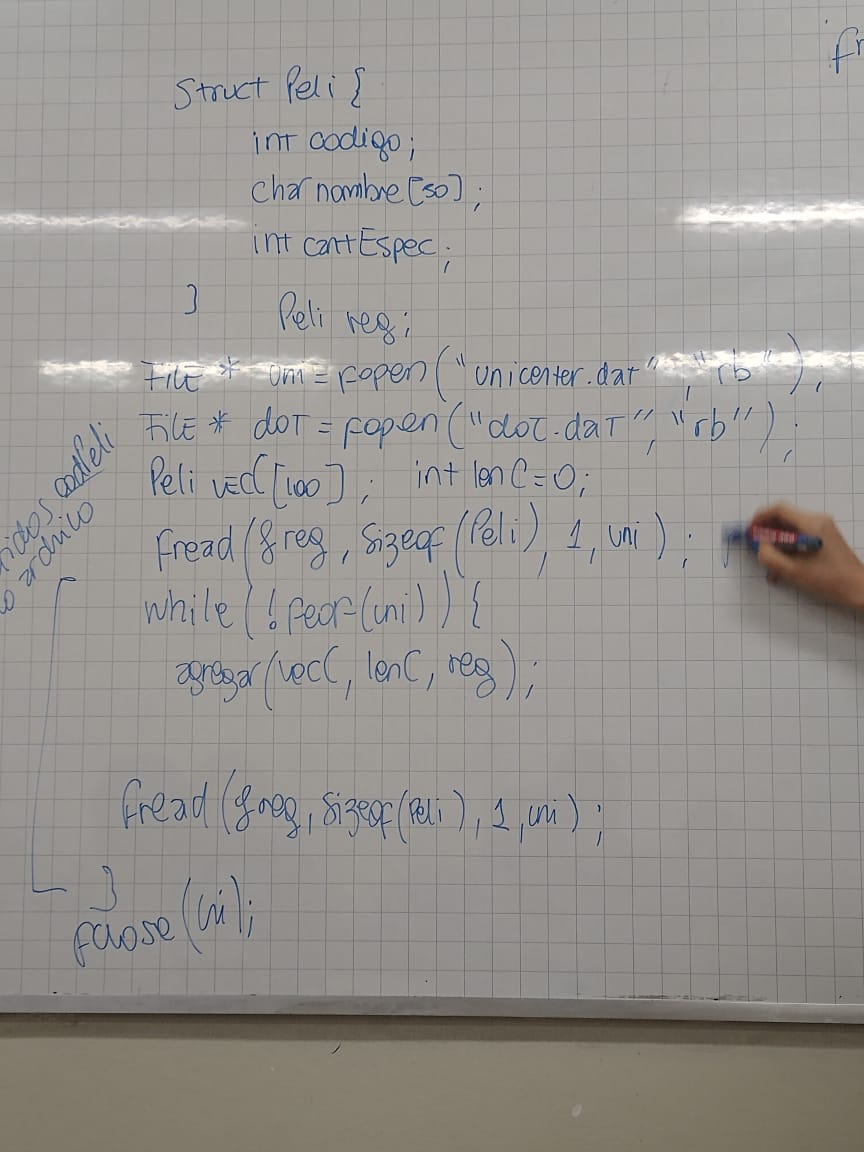 fr
Struct Peli {
int codigo;
char nombre[50];
int cantEspec;
}
Peli reg;
FILE * uni = fopen("unicenter.dat", "rb");
FILE * dot = fopen("dot.dat", "rb");
Peli vecC[100]; int lenC=0;
fread(&reg, sizeof(Peli), 1, uni);
while(!feof(uni)){
agregar(vecC, lenC, reg);
fread(&reg, sizeof(Peli), 1, uni);
}
fclose(uni);
codPeli
archivo